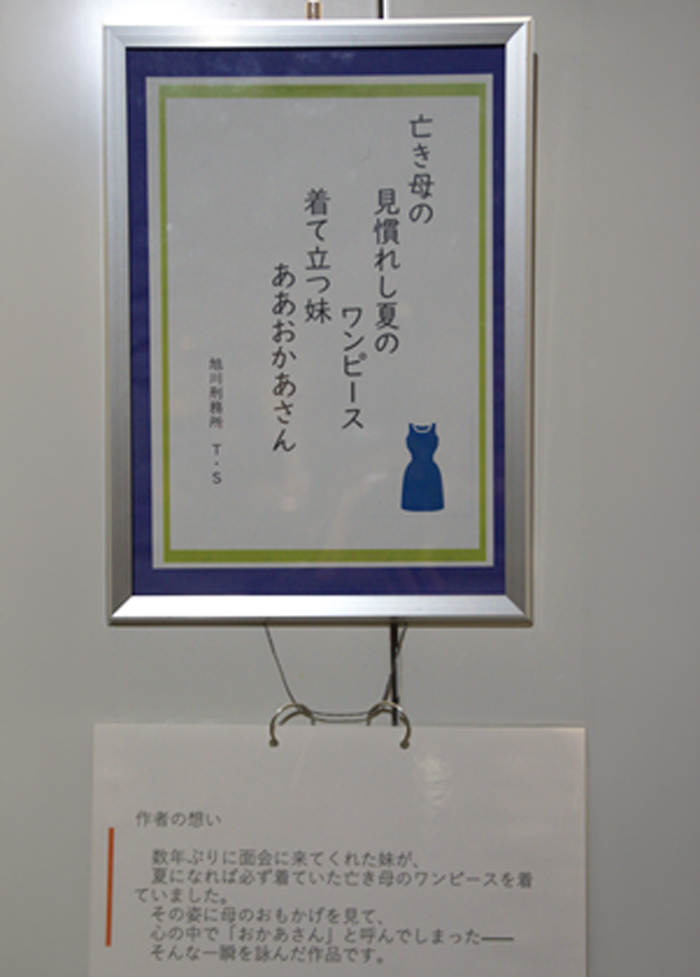 亡き母の
見慣れし夏の
ワンピース
着て立つ妹
ああおかあさん
旭川刑務所 T・S
作者の想い
数年ぶりに面会に来てくれた妹が、
夏になれば必ず着ていた亡き母のワンピースを着
ていました。
その姿に母のおもかげを見て、
心の中で「おかあさん」と呼んでしまった――
そんな一瞬を詠んだ作品です。